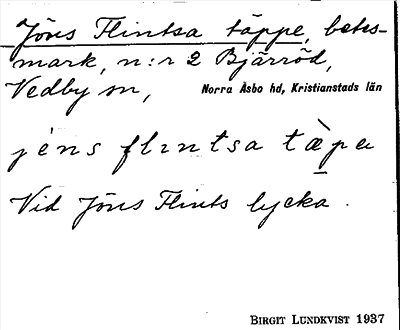 Jöns Flintsa täppe, betes-
mark, n:r 2 Bjärröd,
Vedby sn, Norra Åsbo hd, Kristianstads län
jèns flıntsa tæ̀pa
Vid Jöns Flints lycka.
BIRGIT LUNDKVIST 1937